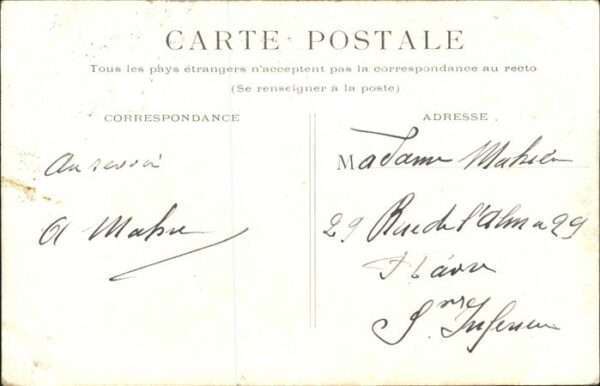 CARTE POSTALE
Tous les pays étrangers n'acceptent pas la correspondance au recto
(Se renseigner à la poste)
CORRESPONDANCE
ADRESSE
Au revoir
Madame Mahieu
29 Rue de l'Alma 29
Havre
Sne Inférieure